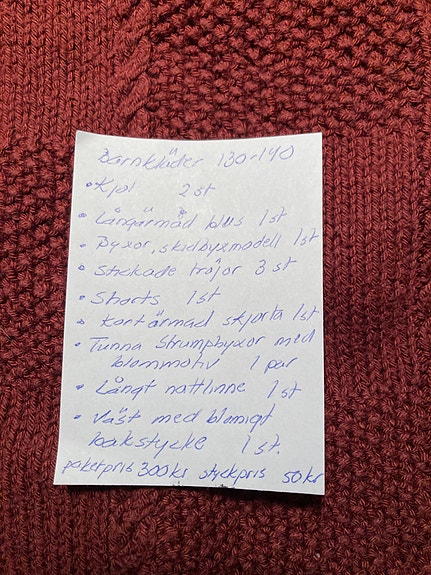 Barnkläder 130-140
• Kjol 2 st
• Långärmad blus 1 st
• Byxor, skidbyxmodell 1 st
• Stickade tröjor 3 st
• Shorts 1 st
• Kortärmad skjorta 1 st
• Tunna Strumpbyxor med
blommotiv 1 par
• Långt nattlinne 1 st
• Väst med blomigt
bakstycke 1 st.
paketpris 300 kr styckpris 50 kr